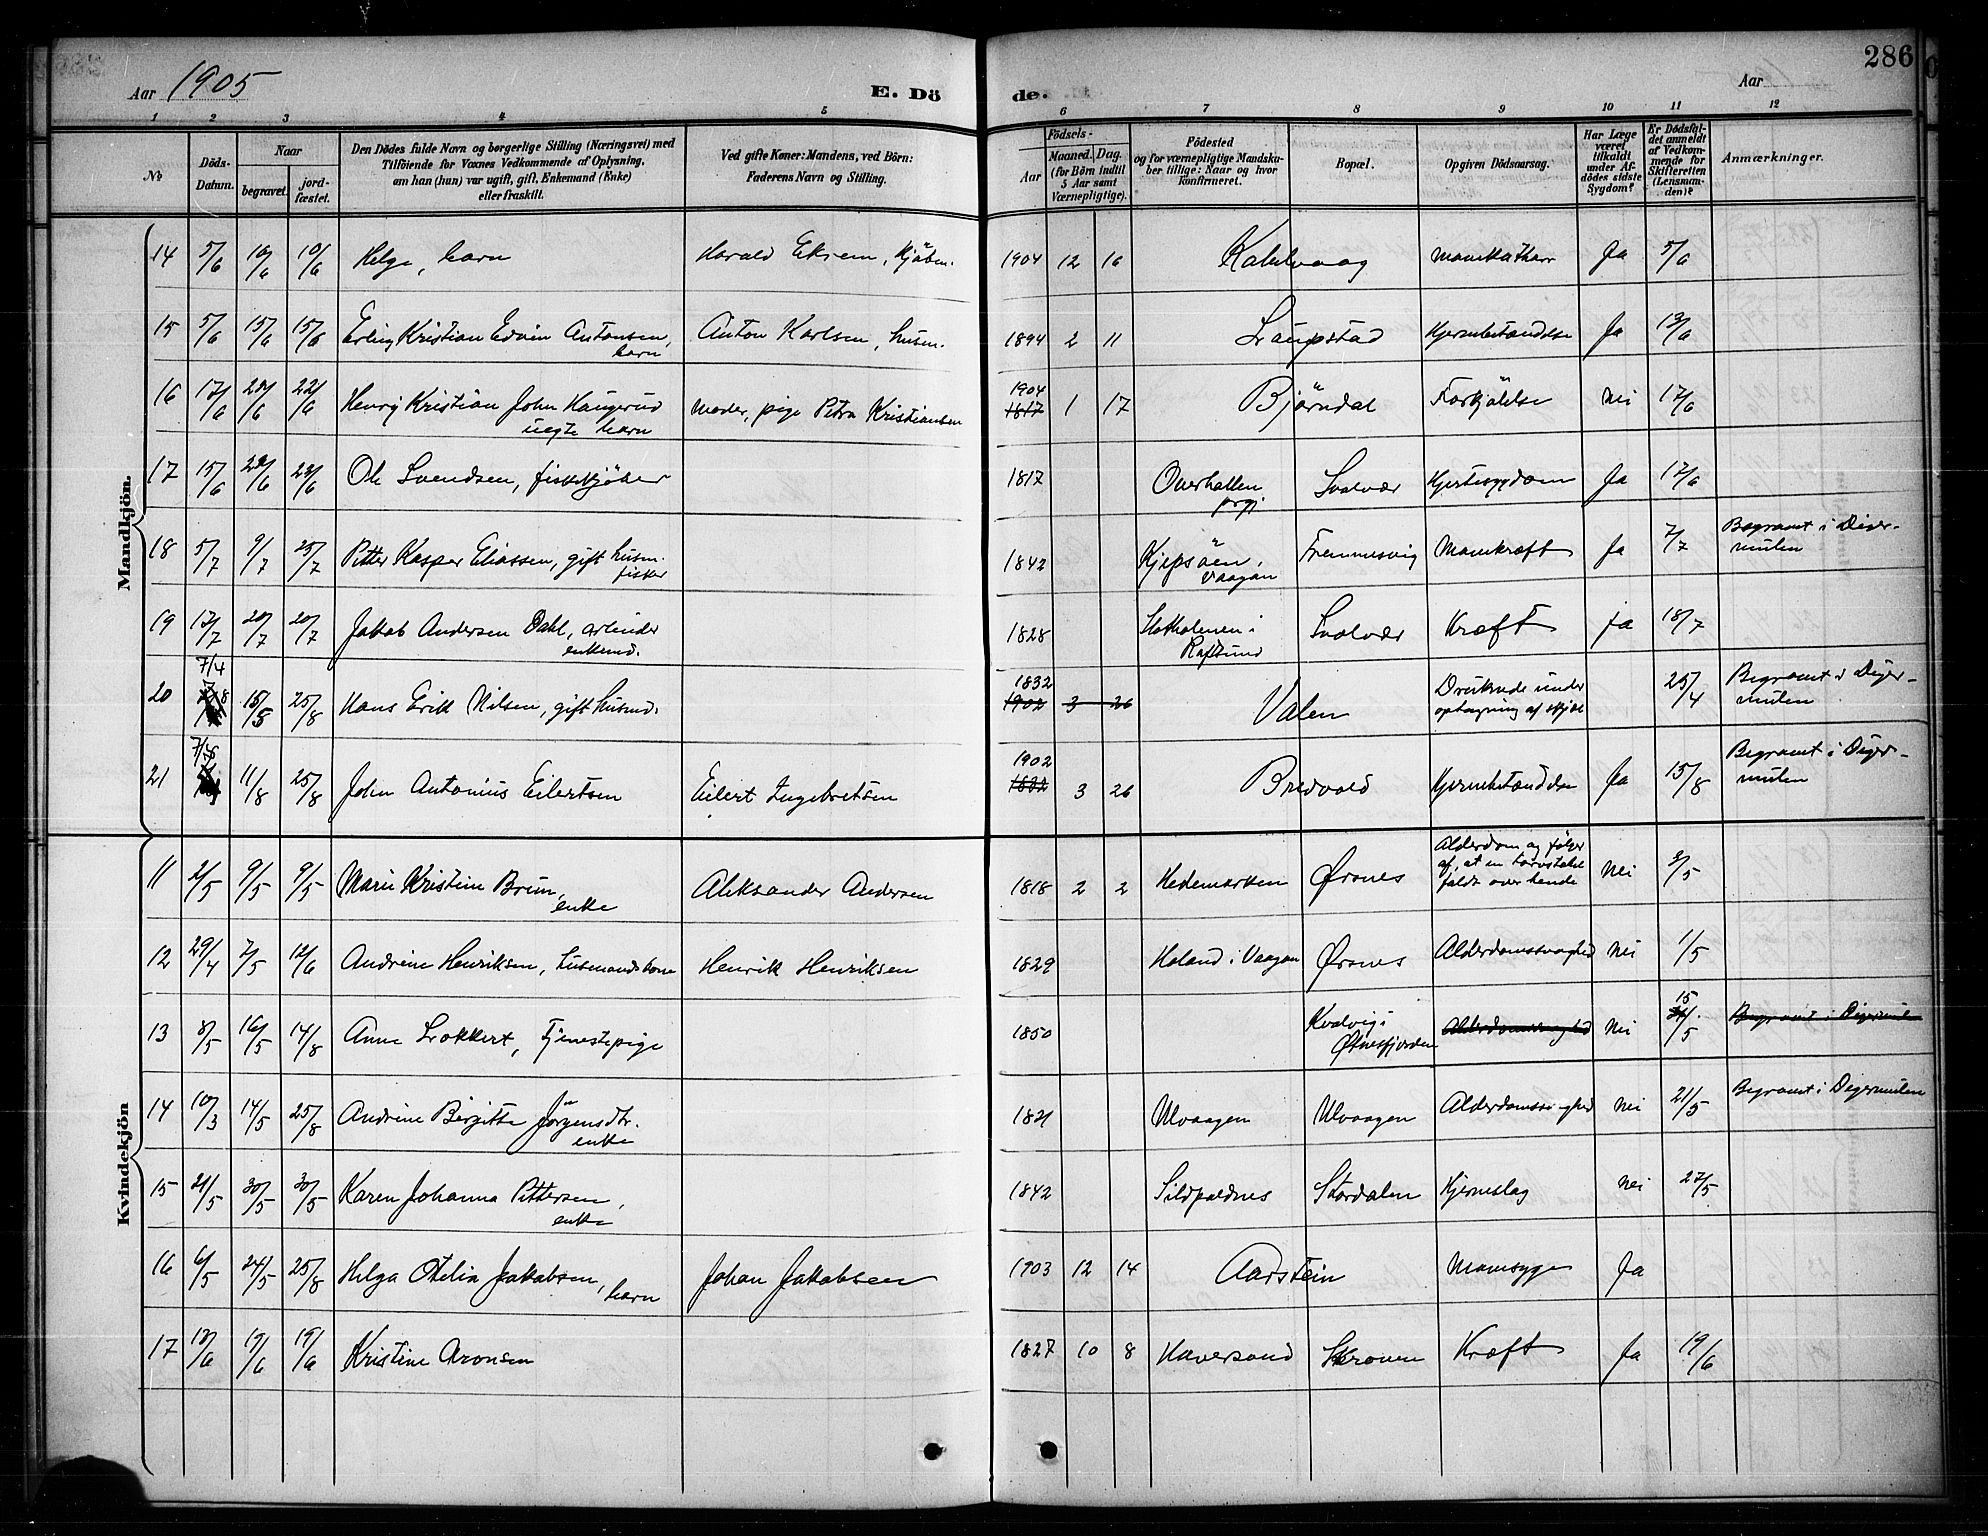 286
Aar 1905
E. Dö
de.
Aar
1 2 3 4 5 6 7 8 9 10 11 12
No
Döds-
Datum.
Naar
begravet.
jord-
fæstet.
Den Dödes fulde Navn og borgerlige Stilling (Næringsvei) med
Tilföiende for Voxnes Vedkommende af Oplysning,
om han (hun) var ugift, gift, Enkemand (Enke)
eller fraskilt.
Ved gifte Koner: Mandens, ved Börn:
Faderens Navn og Stilling.
Födsels-
Aar
Maaned. Dag.
(for Börn indtil
5 Aar samt
Værnepligtige).
Födested
og for værnepligtige Mandska-
ber tillige: Naar og hvor
konfirmeret.
Bopæl.
Opgiven Dödsaarsag.
Har Læge
været
tilkaldt
under Af-
dödes sidste
Sygdom?
Er Dödsfal-
det anmeldt
af Vedkom-
mende for
Skifteretten
(Lensman-
den)?
Anmærkninger.
Mandkjön.
14 5/6 10/6 10/6 Helge, barn Harald Eksem, kjöbm. 1904 12 16 Kabelvaag Mavekatharr Ja 5/6
15 5/6 15/6 15/6 Erling Kristian Edvin Antonsen, Anton Karlsen, husm. 1894 2 11 Laupstad Hjernebetændelse Ja 13/6
barn
16 17/6 22/6 22/6 Henry Kristian John Haugerud Moder, pige Petra Kristiansen 1904 1817 1 17 Björndal Forkjölelse Nei 17/6
uegte barn
17 15/6 22/6 22/6 Ole Svendsen, fiskekjöber 1817 Overhallen Svolvær Hjertesygdom Ja 17/6
prgj
18 5/7 9/7 25/7 Petter Kaspar Eliassen, gift husm. 1842 Kjepsöen, Fremmesvig Mavekræft Ja 7/7 Begravet i Diger-
fisker Vaagan mulen
19 13/7 20/7 20/7 Jakob Andersen Dahl, arbeider 1828 Slotholmen i Svolvær Kræft ja 18/7
enkemd. Raftsund
20 7/4 15/8 25/8 Hans Erik Nilsen, gift husmd. 1832 1902 3 26 Valen Druknede under 25/4 Begravet i Diger-
optagning af skjæl mulen
21 7/8 11/8 25/8 John Antonius Eilertsen Eilert Ingebretsen 1902 1832 3 26 Bredvold Hjernebetændelse Ja 15/8 Begravet i Diger-
mulen
Kvindekjön
11 2/5 9/5 9/5 Marie Kristine Brun, Aleksander Andersen 1818 2 2 Hedemarken Ørsnes Alderdom og følger Nei 3/5
enke af, at en torvstabel
faldt over hende
12 29/4 7/5 12/6 Andrine Henriksen, husmandskone Henrik Henriksen 1829 Høland i Vaagan Ørsnes Alderdomssvaghed Nei 1/5
13 8/5 16/5 14/8 Anne Lokkert, Tjenestepige 1850 Kvalvig i Alderdomssvaghed Nei 15/5 Begravet i Digermulen
Østnesfjorden
14 10/3 14/5 25/8 Andrine Birgitte Jörgensdtr. 1821 Ulvaagen Ulvaagen Alderdomssvaghed Nei 21/5 Begravet i Digermulen
enke
15 21/5 30/5 30/5 Karen Johanna Pettersen, 1842 Sildpoldnes Stordalen Hjerneslag Nei 27/5
enke
16 6/5 24/5 25/8 Helga Otelia Jakobsen, Johan Jakobsen 1903 12 14 Aarstein Mavesyge Ja
barn
17 13/6 19/6 19/6 Kristine Aronsen 1827 10 8 Haversand Skroven Kræft Ja 19/6